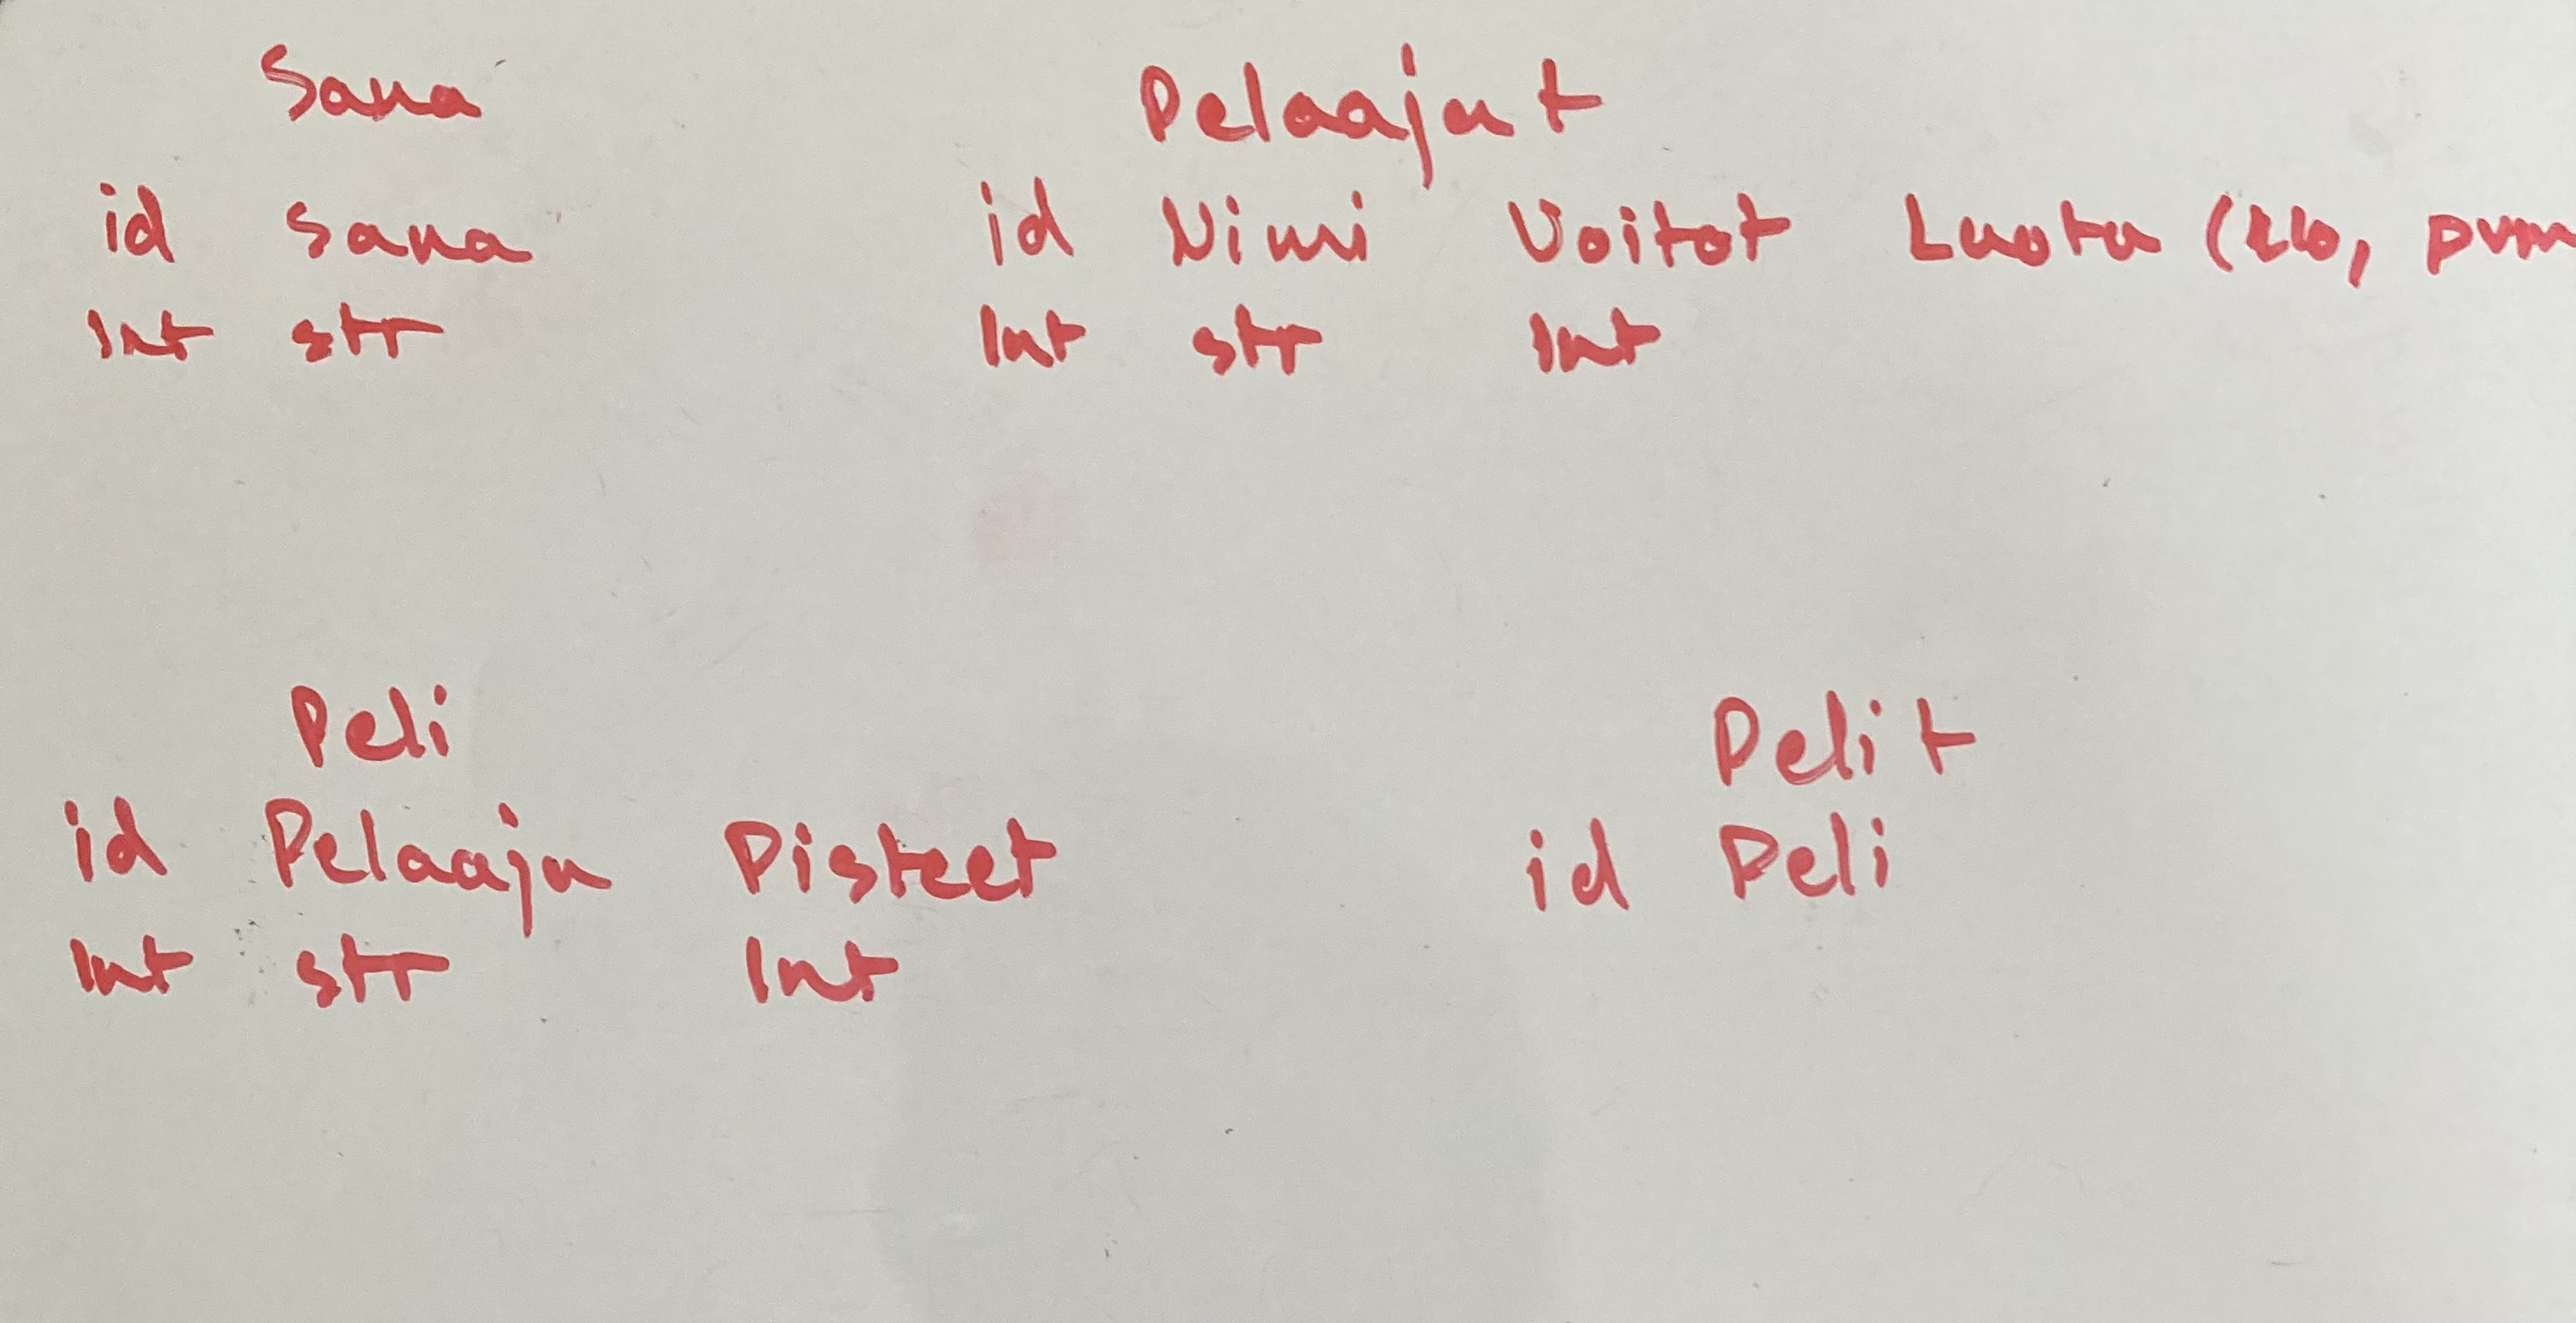 Sana
id Sana
Int str
Pelaajat
id Nimi Voitot Luotu (klo, pvm
Int str Int
Peli
id Pelaaja Pisteet
Int str Int
Pelit
id Peli